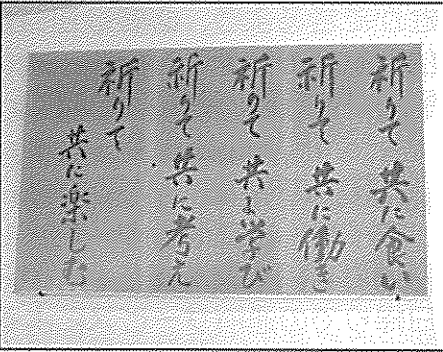 祈りて 共に食い
祈りて 共に働き
祈りて 共に学び
祈りて 共に考え
祈りて
共に楽しむ